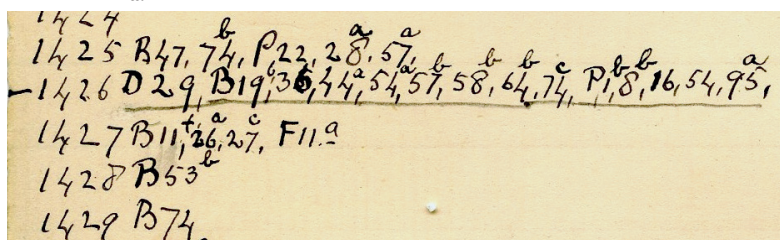 1424
1425 B47, 74b, P,22, 28a, 57a,
1426 D29, B19b,36,44a,54a,57b, 58b, 64b,74c, P1b,8b,16, 54, 95a,
1427 B11+,26a,27c, F11a
1428 B53b
1429 B74